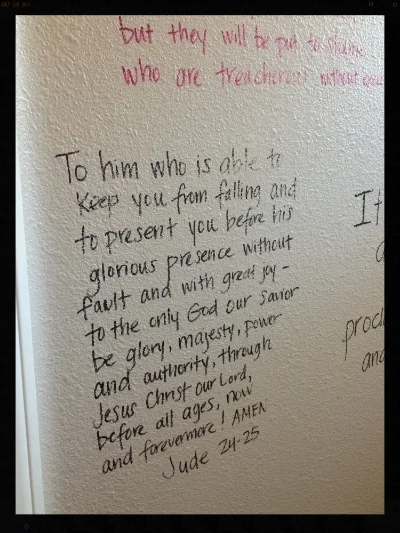 but they will be put to shame
who are treacherous without
To him who is able to
Keep you from falling and
to present you before his
glorious presence without
fault and with great joy -
to the only God our Savior
be glory, majesty, power
and authority, through
Jesus Christ our Lord,
before all ages, now
and forevermore! AMEN
Jude 24-25
It
procl
and